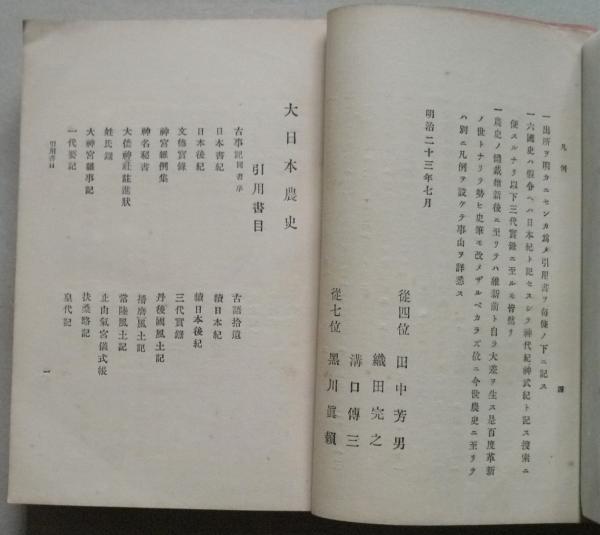 凡例
一出所ヲ明カニセンカ爲メ引用書ヲ每條ノ下ニ記ス
一六國史ハ假令ヘハ日本紀ト記セスシテ神代紀神武紀ト記ス捜索ニ
便スルナリ以下三代實錄ニ至ルモ皆然リ
一農史ノ體裁維新後ニ至リテハ維新前ト自ラ大差ヲ生ス是百度革新
ノ世トナリテ勢ヒ史筆モ改メザルベカラズ故ニ今世農史ニ至リテ
ハ別ニ凡例ヲ設ケテ事由ヲ詳悉ス
明治二十三年七月
從四位 田中芳男
織田完之
溝口傳三
從七位 黑川眞賴
大日本農史
引用書目
古事記同書序
古語拾遺
日本書紀
續日本紀
日本後紀
續日本後紀
文德實錄
三代實錄
神宮雜例集
丹後國風土記
神名秘書
播磨風土記
大倭神社註進狀
常陸風土記
姓氏錄
止由氣宮儀式帳
大神宮雜事記
扶桑略記
一代要記
皇代記
引用書目
一